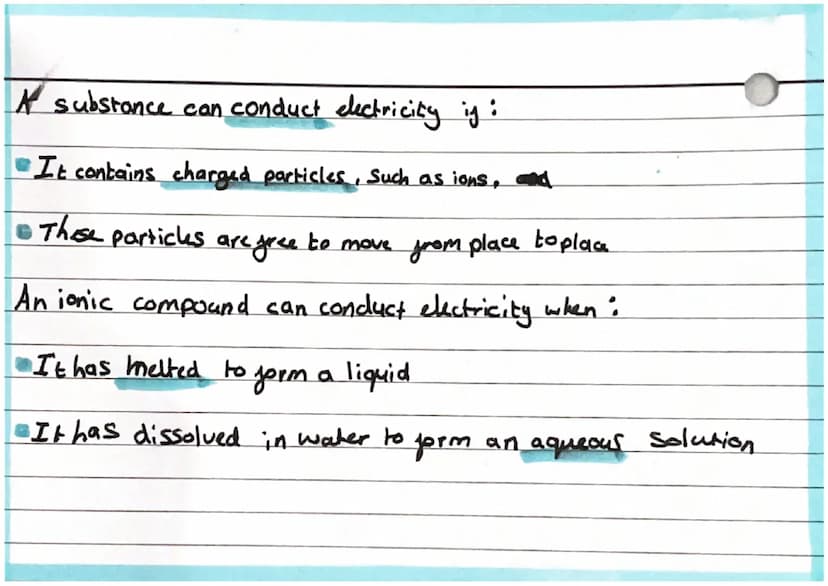 A substance can conduct electricity if:
• It contains charged particles, such as ions,
• These particles are free to move from place to place
An ionic compound can conduct electricity when:
• It has melted to form a liquid
• It has dissolved in water to form an aqueous solution